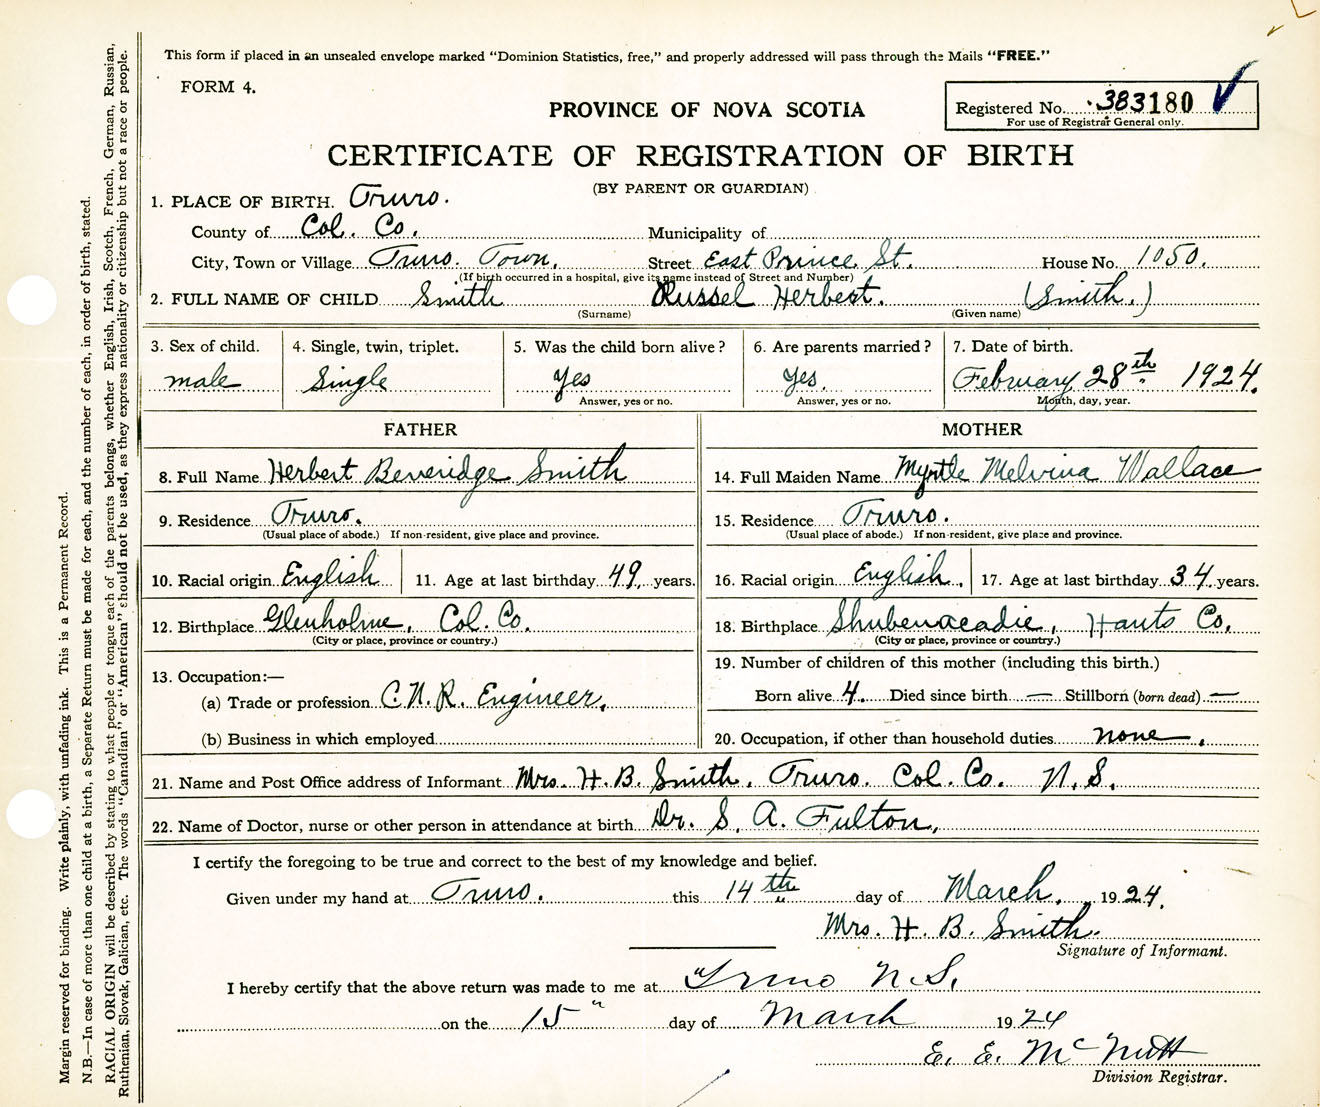 This form if placed in an unsealed envelope marked “Dominion Statistics, free,” and properly addressed will pass through the Mails “FREE.”
FORM 4.
PROVINCE OF NOVA SCOTIA
Registered No. 383180
For use of Registrar General only.
CERTIFICATE OF REGISTRATION OF BIRTH
(BY PARENT OR GUARDIAN)
1. PLACE OF BIRTH. Truro.
County of Col. Co. Municipality of
City, Town or Village Truro. Town. Street East Prince St. House No. 1050.
(If birth occurred in a hospital, give its name instead of Street and Number)
2. FULL NAME OF CHILD Smith Russel Herbest. (Smith.)
(Surname) (Given name)
3. Sex of child. 4. Single, twin, triplet. 5. Was the child born alive? 6. Are parents married? 7. Date of birth.
male Single Yes Yes. February 28th 1924.
Answer, yes or no. Answer, yes or no. Month, day, year.
FATHER MOTHER
8. Full Name Herbert Beveridge Smith 14. Full Maiden Name Myrtle Melvina Wallace
9. Residence Truro. 15. Residence Truro.
(Usual place of abode.) If non-resident, give place and province. (Usual place of abode.) If non-resident, give place and province.
10. Racial origin English 11. Age at last birthday 49 years. 16. Racial origin English. 17. Age at last birthday 34 years.
12. Birthplace Glenholme, Col. Co. 18. Birthplace Shubenacadie, Hants Co.
(City or place, province or country.) (City or place, province or country.)
13. Occupation:— 19. Number of children of this mother (including this birth.)
(a) Trade or profession C.N.R. Engineer. Born alive 4. Died since birth — Stillborn (born dead) —
(b) Business in which employed 20. Occupation, if other than household duties none.
21. Name and Post Office address of Informant Mrs. H. B. Smith. Truro. Col. Co. N.S.
22. Name of Doctor, nurse or other person in attendance at birth Dr. S. A. Fulton.
I certify the foregoing to be true and correct to the best of my knowledge and belief.
Given under my hand at Truro. this 14th day of March. 1924.
Mrs. H. B. Smith.
Signature of Informant.
I hereby certify that the above return was made to me at Truro N.S.
on the 15" day of March 1924
E. E. McNutt
Division Registrar.
Margin reserved for binding. Write plainly, with unfading ink. This is a Permanent Record.
N.B.—In case of more than one child at a birth, a Separate Return must be made for each, and the number of each, in order of birth, stated.
RACIAL ORIGIN will be described by stating to what people or tongue each of the parents belongs, whether English, Irish, Scotch, French, German, Russian,
Ruthenian, Slovak, Galician, etc. The words “Canadian” or “American” should not be used, as they express nationality or citizenship but not a race or people.